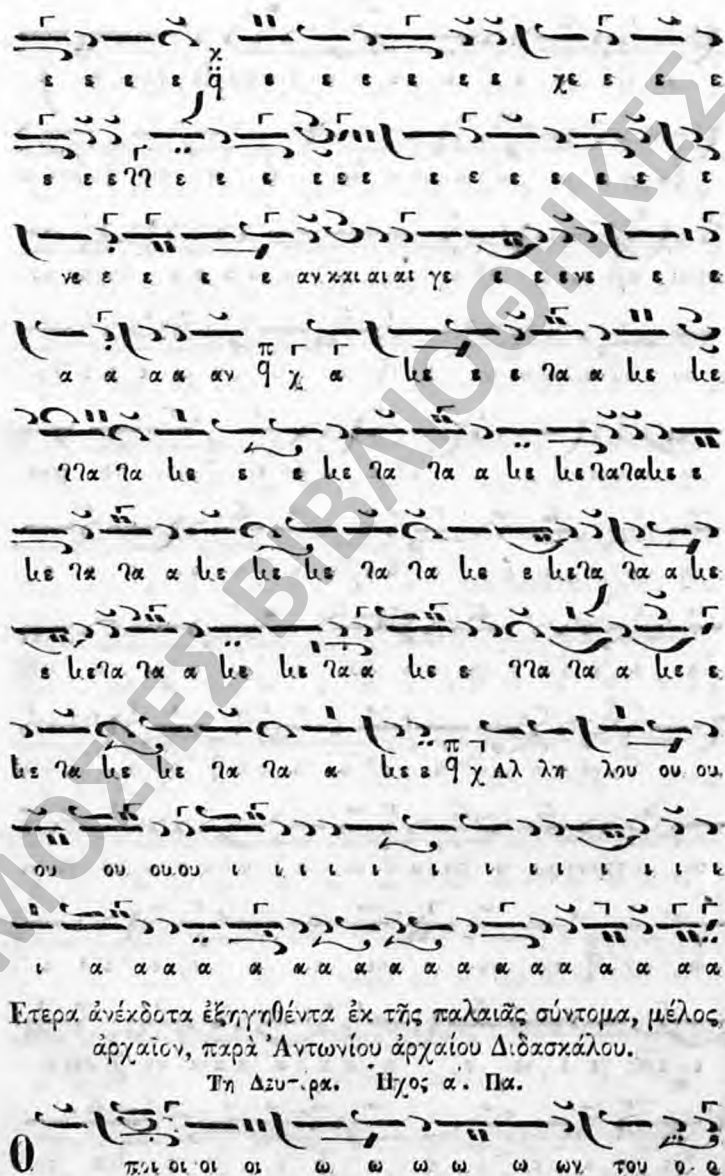 ε ε ε ε ε ε ε ε ε ε ε χε ε ε ε
ε ε ε ε ε ε ε ε ε ε ε ε ε ε ε ε
νε ε ε ε ε αν και αι αι γε ε ε ε νε ε ε
α α α α αν π q χ α κε ε ε τα α κε κε
ττα τα κε ε ε κε τα τα α κε κε τατακε ε
κε τα τα α κε κε κε τα τα κε ε κετα τα α κε
ε κετα τα α κε κε τα α κε ε ττα τα α κε ε
κε τα κε κε τα τα α κε ε π q χ Αλ λη λου ου ου
ου ου ου ου ι ι ι ι ι ι ι ι ι ι ι ι
ι α α α α α α α α α α α α α α α α α
Ετερα ἀνέκδοτα ἐξηγηθέντα ἐκ τῆς παλαιᾶς σύντομα, μέλος
ἀρχαῖον, παρὰ Ἀντωνίου ἀρχαίου Διδασκάλου.
Τῃ Δευτέρα. Ἦχος α΄. Πα.
Ο ποι οι οι οι ω ω ω ω ω ων του ο ο
ΔΗΜΟΣΙΕΣ ΒΙΒΛΙΟΘΗΚΕΣ